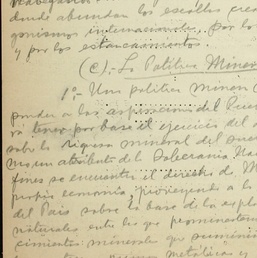 donde abundan los escollos crea
gonismos internacionales, por lo
y por los estancamientos.
(C): La Política Minera
1º— Una política minera (
ponder a las aspiraciones del Pue
rá tener por base el ejercicio del
sobre la riqueza mineral del sue
no, un atributo de la Soberanía Na
fines se encuentra el derecho de
propia economía proveyendo a lo
del País sobre la base de la explo
naturales entre los que prominentem
cimientos minerales que suminis